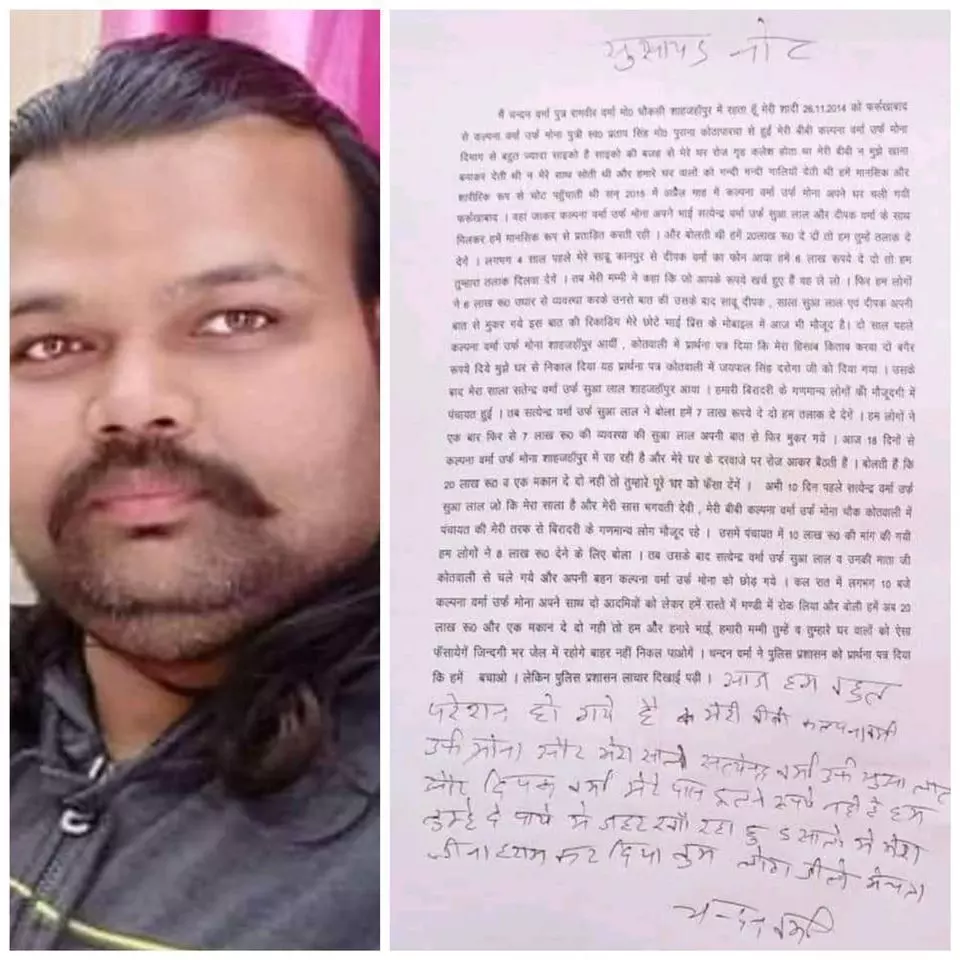 सुसायड नोट
मैं चन्दन वर्मा पुत्र रामवीर वर्मा मो० चौकसी शाहजहाँपुर में रहता हूं मेरी शादी 26.11.2014 को फर्रुखाबाद
से कल्पना वर्मा उर्फ मोना पुत्री स्व० प्रताप सिंह मो० पुराना कोठापारचा से हुई मेरी बीबी कल्पना वर्मा उर्फ मोना
दिमाग से बहुत ज्यादा साइको है साइको की बजह से मेरे घर रोज गृह कलेश होता था मेरी बीबी न मुझे खाना
बनाकर देती थी न मेरे साथ सोती थी और हमारे घर वालों को गन्दी गन्दी गालियाँ देती थी हमें मानसिक और
शारीरिक रूप से चोट पहुँचाती थी सन् 2015 में अप्रैल माह में कल्पना वर्मा उर्फ मोना अपने घर चली गयी
फर्रुखाबाद । वहां जाकर कल्पना वर्मा उर्फ मोना अपने भाई सत्येन्द्र वर्मा उर्फ सुआ लाल और दीपक वर्मा के साथ
मिलकर हमें मानसिक रूप से प्रताडित करती रही । और बोलती थी हमें 20लाख रू0 दे दो तो हम तुम्हें तलाक दे
देगें । लगभग 4 साल पहले मेरे साढू कानपुर से दीपक वर्मा का फोन आया हमें 6 लाख रूपये दे दो तो हम
तुम्हारा तलाक दिलवा देगें । तब मेरी मम्मी ने कहा कि जो आपके रूपये खर्च हुए हैं वह ले लो । फिर हम लोगों
ने 6 लाख रू0 उधार से व्यवस्था करके उनसे बात की उसके बाद साढू दीपक , साला सुआ लाल एवं दीपक अपनी
बात से मुकर गये इस बात की रिकार्डिग मेरे छोटे भाई प्रिंस के मोबाइल में आज भी मौजूद है। दो साल पहले
कल्पना वर्मा उर्फ मोना शाहजहाँपुर आयीं , कोतवाली में प्रार्थना पत्र दिया कि मेरा हिसाब किताब करवा दो बगैर
रूपये दिये मुझे घर से निकाल दिया यह प्रार्थना पत्र कोतवाली में जयपाल सिंह दरोगा जी को दिया गया । उसके
बाद मेरा साला सतेन्द्र वर्मा उर्फ सुआ लाल शाहजहाँपुर आया । हमारी बिरादरी के गणमान्य लोगों की मौजूदगी में
पंचायत हुई । तब सत्येन्द्र वर्मा उर्फ सुआ लाल ने बोला हमें 7 लाख रूपये दे दो हम तलाक दे देगें । हम लोगों ने
एक बार फिर से 7 लाख रू0 की व्यवस्था की सुआ लाल अपनी बात से फिर मुकर गये । आज 18 दिनों से
कल्पना वर्मा उर्फ मोना शाहजहाँपुर में रह रही है और मेरे घर के दरवाजे पर रोज आकर बैठती है । बोलती हैं कि
20 लाख रू0 व एक मकान दे दो नही तो तुम्हारे पूरे घर को फँसा देंगें । अभी 10 दिन पहले सत्येन्द्र वर्मा उर्फ
सुआ लाल जो कि मेरा साला है और मेरी सास भगवती देवी , मेरी बीबी कल्पना वर्मा उर्फ मोना चौक कोतवाली में
पंचायत की मेरी तरफ से बिरादरी के गणमान्य लोग मौजूद रहे । उसमें पंचायत में 10 लाख रू0 की मांग की गयी
हम लोगों ने 8 लाख रू0 देने के लिए बोला । तब उसके बाद सत्येन्द्र वर्मा उर्फ सुआ लाल व उनकी माता जी
कोतवाली से चले गये और अपनी बहन कल्पना वर्मा उर्फ मोना को छोड़ गये । कल रात में लगभग 10 बजे
कल्पना वर्मा उर्फ मोना अपने साथ दो आदमियों को लेकर हमें रास्ते में मण्डी में रोक लिया और बोली हमें अब 20
लाख रू0 और एक मकान दे दो नही तो हम और हमारे भाई, हमारी मम्मी तुम्हें व तुम्हारे घर वालों को ऐसा
फँसायेगें जिन्दगी भर जेल में रहोगे बाहर नहीं निकल पाओगें । चन्दन वर्मा ने पुलिस प्रशासन को प्रार्थना पत्र दिया
कि हमें बचाओ । लेकिन पुलिस प्रशासन लाचार दिखाई पड़ी । आज हम बहुत
परेशान हो गये है मेरी बीबी कल्पना वर्मा
उर्फ मोना और मेरा साला सत्येन्द्र वर्मा उर्फ सुआ लाल
और दिपक वर्मा मेरे पास इतने रूपये नही है हम
तुम्हे दे पाये मै जहर खा रहा हु सालो ने मेरा
जीना कर दिया तुम लोग
चन्दन वर्मा